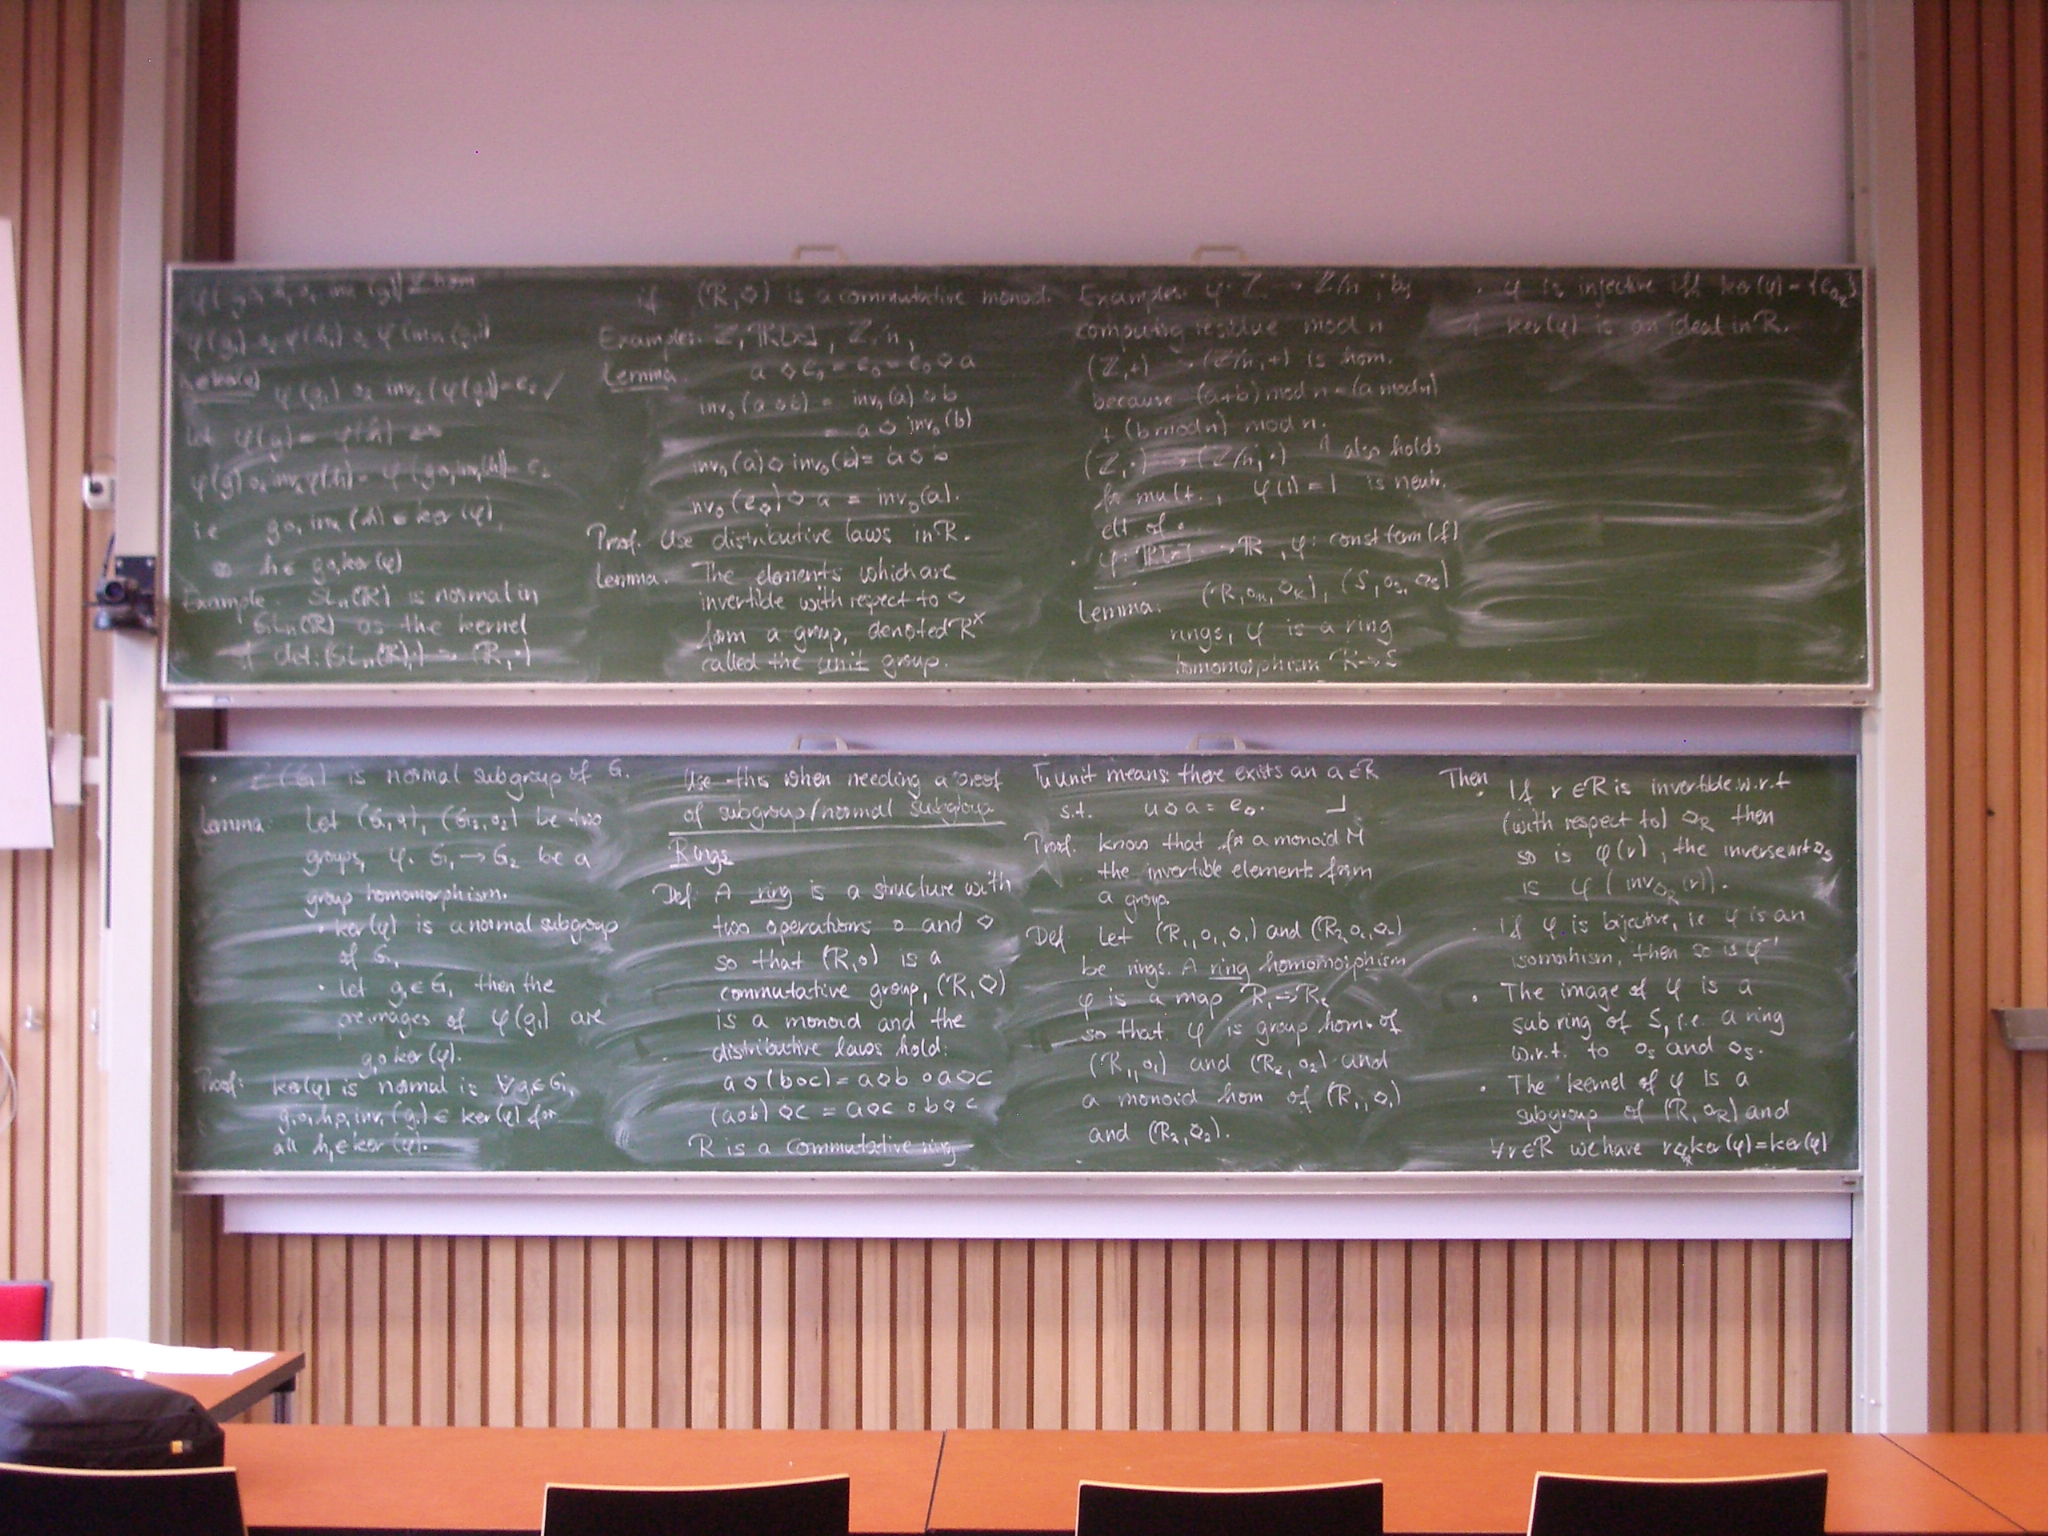 φ(g₁) o₂ φ(h₁) o₂ φ(inv₁(g₁))
h∈ker(φ)
φ(g₁) o₂ inv₂(φ(g₁)) = e₂ ✓
Let φ(g) = φ(h) ⇔
φ(g) o₂ inv₂φ(h) = φ(g o₁ inv₁(h)) = e₂
i.e. g o₁ inv₁(h) ∈ ker(φ),
so h ∈ g o₁ ker(φ)
Example. SLₙ(ℝ) is normal in
GLₙ(ℝ) as the kernel
of det: (GLₙ(ℝ),·) → (ℝ,·)
if (R,◇) is a commutative monoid.
Examples: ℤ, ℝ[x], ℤ/n,
Lemma. a ◇ e₀ = e₀ = e₀ ◇ a
inv₀(a ◇ b) = inv₀(a) ◇ b
= a ◇ inv₀(b)
inv₀(a) ◇ inv₀(b) = a ◇ b
inv₀(e◇) ◇ a = inv₀(a).
Proof. Use distributive laws in R.
Lemma. The elements which are
invertible with respect to ◇
form a group, denoted R^×
called the unit group.
Examples. φ: ℤ → ℤ/n, by
computing residue mod n
(ℤ,+) → (ℤ/n,+) is hom.
because (a+b) mod n = (a mod n)
+ (b mod n) mod n.
(ℤ,·) → (ℤ/n,·) also holds
for mult., φ(1) = 1 is neutr.
elt of ·.
· φ: ℝ[x] → ℝ, φ: const term (f)
Lemma: (R,o_R,◇_R), (S,o_S,◇_S)
rings, φ is a ring
homomorphism R → S
· φ is injective iff ker(φ) = {e_{o_R}}
ker(φ) is an ideal in R.
· Z(G) is normal subgroup of G.
Lemma: Let (G₁,o₁), (G₂,o₂) be two
groups, φ: G₁ → G₂ be a
group homomorphism.
· ker(φ) is a normal subgroup
of G₁
· Let g₁ ∈ G₁ then the
preimages of φ(g₁) are
g₁ o ker(φ).
Proof: ker(φ) is normal is ∀g₁∈G₁,
g₁ o₁ h₁ o₁ inv₁(g₁) ∈ ker(φ) for
all h₁ ∈ ker(φ).
Use this when needing a proof
of subgroup/normal subgroup
Rings
Def: A ring is a structure with
two operations o and ◇
so that (R,o) is a
commutative group, (R,◇)
is a monoid and the
distributive laws hold:
a◇(boc) = a◇b o a◇c
(aob)◇c = a◇c o b◇c
R is a commutative ring
u unit means: there exists an a∈R
s.t. u◇a = e◇. ┘
Proof. know that for a monoid M
the invertible elements form
a group.
Def Let (R₁,o₁,◇₁) and (R₂,o₂,◇₂)
be rings. A ring homomorphism
φ is a map R₁ → R₂
so that φ is group hom. of
(R₁,o₁) and (R₂,o₂) and
a monoid hom of (R₁,◇₁)
and (R₂,◇₂).
Then · If r∈R is invertible w.r.t
(with respect to) ◇_R then
so is φ(r), the inverse wrt ◇_S
is φ(inv_{◇_R}(r)).
· If φ is bijective, i.e φ is an
isomorphism, then so is φ⁻¹
· The image of φ is a
subring of S, i.e. a ring
w.r.t. to o_S and ◇_S.
· The kernel of φ is a
subgroup of (R,o_R) and
∀r∈R we have r◇_R ker(φ) = ker(φ)